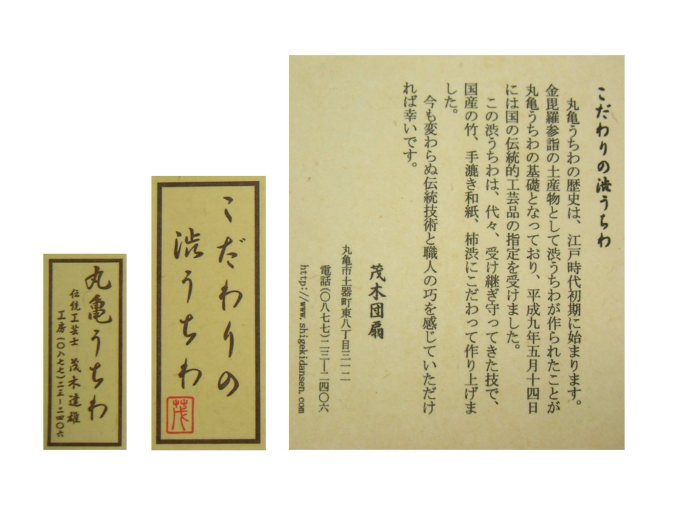 こだわりの渋うちわ
丸亀うちわの歴史は、江戸時代初期に始まります。
金毘羅参詣の土産物として渋うちわが作られたことが
丸亀うちわの基礎となっており、平成九年五月十四日
には国の伝統的工芸品の指定を受けました。
この渋うちわは、代々、受け継ぎ守ってきた技で、
国産の竹、手漉き和紙、柿渋にこだわって作り上げま
した。
今も変わらぬ伝統技術と職人の巧を感じていただけ
れば幸いです。
茂木団扇
丸亀市土器町東八丁目三一二
電話(〇八七七)二三ー二四〇六
http://www.shigekidansen.com
こだわりの
渋うちわ
茂
丸亀うちわ
伝統工芸士 茂木達雄
工房(〇八七七)二三ー二四〇六